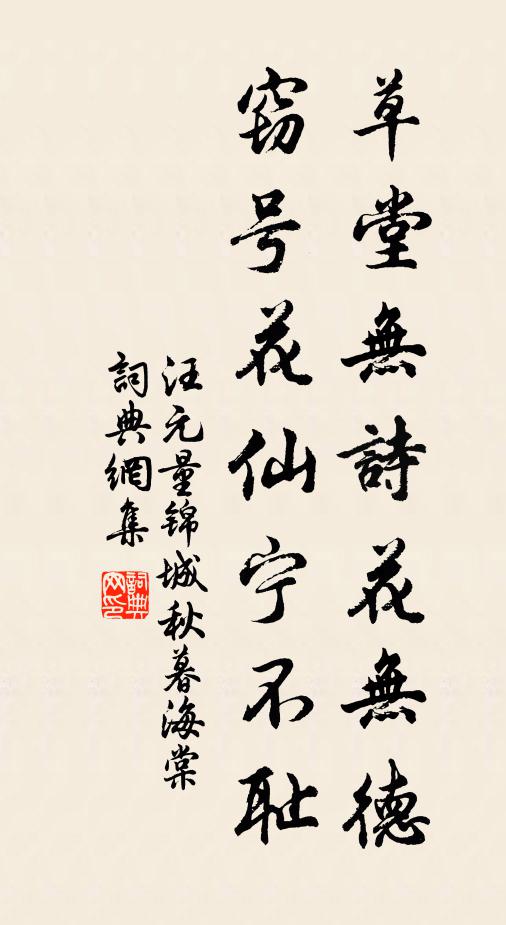 草堂無詩花無德
窈号花仙宁不耻
汪元量锦城秋暮海棠
詞典網集
詞典网印